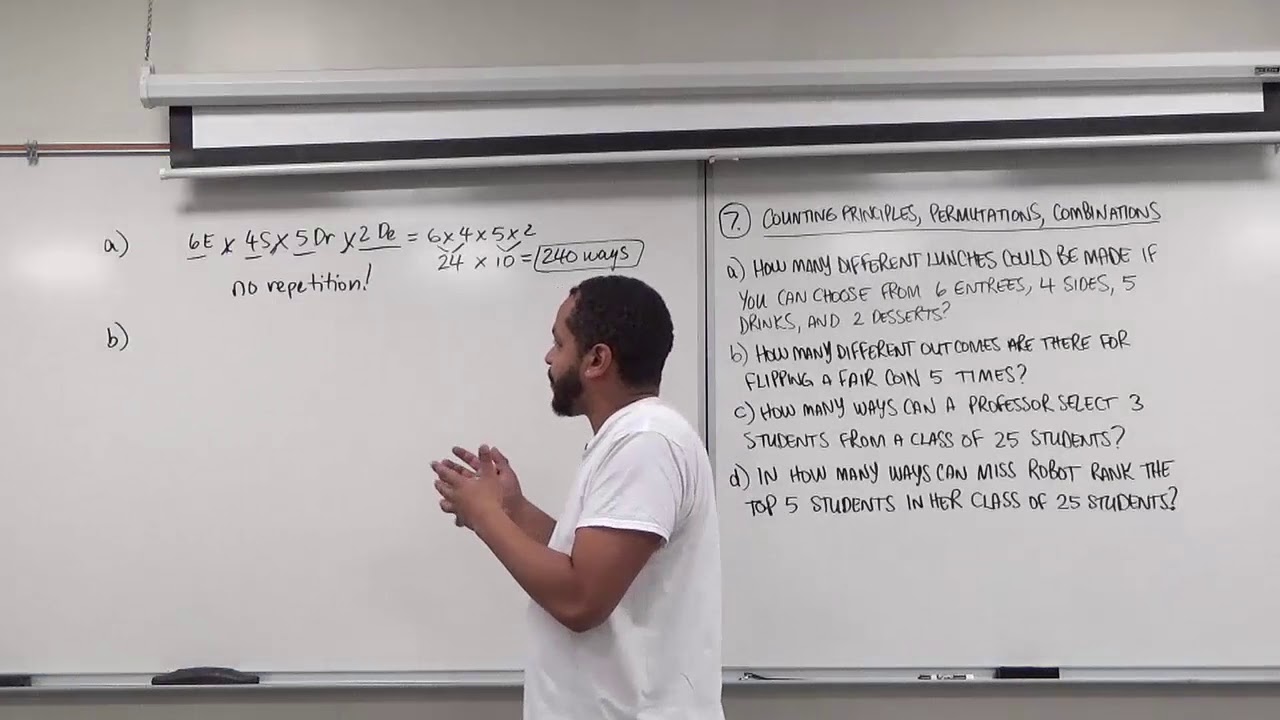 a) 6E x 4S x 5 Dr x 2 De = 6 x 4 x 5 x 2
24 x 10 = 240 ways
no repetition!
b)
7. COUNTING PRINCIPLES, PERMUTATIONS, COMBINATIONS
a) HOW MANY DIFFERENT LUNCHES COULD BE MADE IF
YOU CAN CHOOSE FROM 6 ENTREES, 4 SIDES, 5
DRINKS, AND 2 DESSERTS?
b) HOW MANY DIFFERENT OUTCOMES ARE THERE FOR
FLIPPING A FAIR COIN 5 TIMES?
c) HOW MANY WAYS CAN A PROFESSOR SELECT 3
STUDENTS FROM A CLASS OF 25 STUDENTS?
d) IN HOW MANY WAYS CAN MISS ROBOT RANK THE
TOP 5 STUDENTS IN HER CLASS OF 25 STUDENTS?